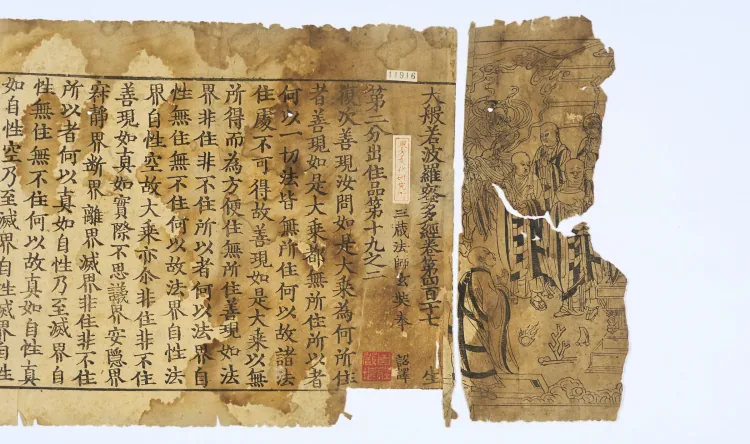 11916
大般若波羅蜜多經卷第四百十七 生
三藏法師玄奘奉 詔譯
第二分出住品第十九之二
復次善現汝問如是大乘為何所住
者善現如是大乘都無所住所以者
何以一切法皆無所住何以故諸法
住處不可得故善現如是大乘以無
所得而為方便住無所住善現如法
界非住非不住所以者何以法界自
性無住無不住何以故法界自性法
界自性空故大乘亦尒非住非不住
善現如真如實際不思議界安隱界
寂靜界斷界離界滅界非住非不住
所以者何以真如自性乃至滅界自
性無住無不住何以故真如自性真
如自性空乃至滅界自性滅界自性